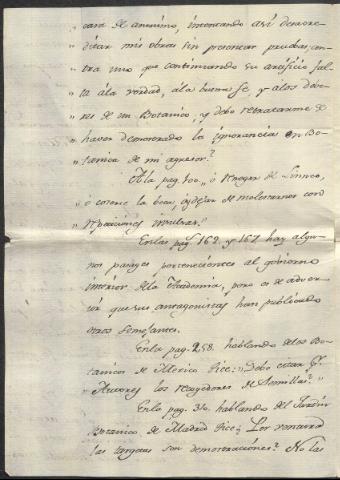 „ cara del anonimo, intentando asi desacre-
„ ditar mis obras sin presentar pruebas, con-
„ tra uno que continuando su artificio fal-
„ ta á la verdad, a la buena fe, y a los debe-
„ res de un Botanico, y debo retratarme de
„ haver demostrado la ignorancia en Bo-
„ tanica de mi agresor.?
A la pag. 100. „ ó
ó coserse la boca, y dejar de molestarnos con
En las pag. 162. y 167. hay algu-
nos parages pertenecientes al gobierno
interior de la Academia, pero es de adver-
tir que sus antagonistas han publicado
otros semejantes.
En la pag. 258. hablando de los Bo-
tanicos de Mexico dice: „ Debo citar pr.
Autores los Recogedores de Semillas?„
En la pag. 30. hablando del Jardin
Botanico de Madrid dice ¿ Los
las targetas son demostraciones? No las